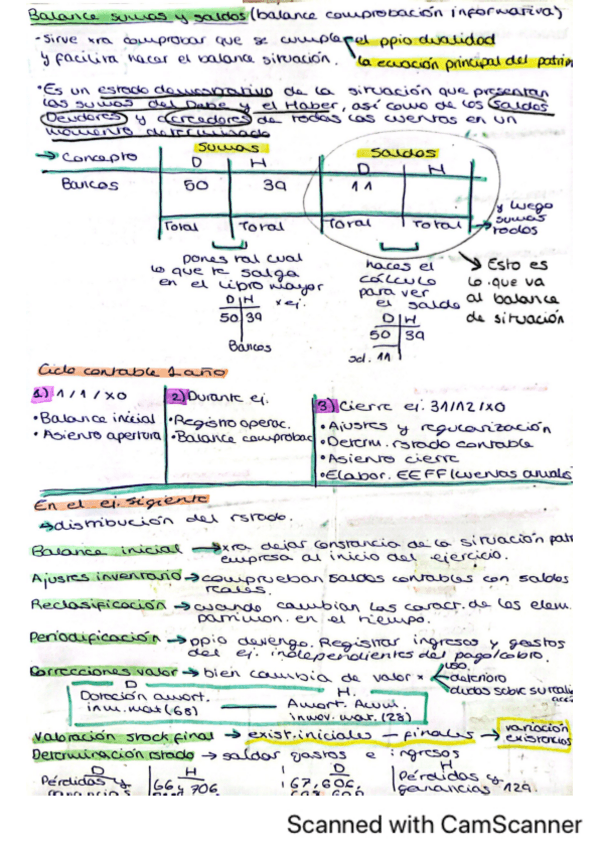 Balance sumas y saldos (balance comprobación informativa)
- sirve xra comprobar que se cumple el ppio dualidad
y facilita hacer el balance situación. la ecuación principal del patrim
• Es un estado demostrativo de la situación que presentan
las sumas del Debe y el Haber, así como de los saldos
Deudores y acreedores de todas las cuentas en un
momento determinado
Sumas Saldos
→ Concepto D H D H
Bancos 50 39 11
Total Total Total Total → y luego
sumas
todos
pones tal cual
lo que te salga
en el libro mayor
D H x ej.
50 39
Bancos
haces el
cálculo
para ver
el saldo
D H
50 39
sd. 11
Esto es
lo que va
al balance
de situación
Ciclo contable 1 año
1) 1/1/X0
• Balance inicial
• Asiento apertura
2) Durante ej.
• Registro operac.
• Balance comprobac
3) Cierre ej. 31/12/X0
• Ajustes y regularización
• Determ. rstado contable
• Asiento cierre
• Elabor. EEFF (cuentas anuales
En el ej. siguiente
→ distribución del rstado.
Balance inicial → xra dejar constancia de la situación patr
empresa al inicio del ejercicio.
Ajustes inventario → comprueban saldos contables con saldos
reales.
Reclasificación → cuando cambian las caract. de los elem.
patrimon. en el tiempo.
Periodificación → ppio devengo. Registrar ingresos y gastos
del ej. independientes del pago/cobro.
Correcciones valor → bien cambia de valor x uso.
deterioro
dudas sobre su
D H.
Dotación amort. — Amort. Acum.
inm. mat (68) inmov. mat. (28)
Valoración stock final → exist. iniciales - finales → variación
existencias
Determinación rstado → saldar gastos e ingresos
D H D H
Pérdidas y 66 y 706. 67, 606, Pérdidas y
ganancias ganancias 129.
Scanned with CamScanner